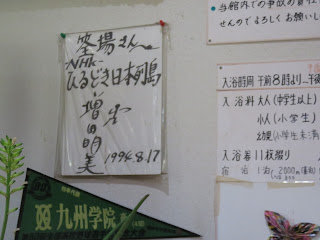 筌場さん江
NHK
ひるどき日本列島
増田明美
1994.8.17
九州学院
当館内での事故の責任
せんのでよろしくお願いし
入浴時間 午前8時より
入浴料 大人(中学生以上)
小人(小学生)
幼児(小学生未満
入浴券11枚綴り
宿泊 1泊 2000